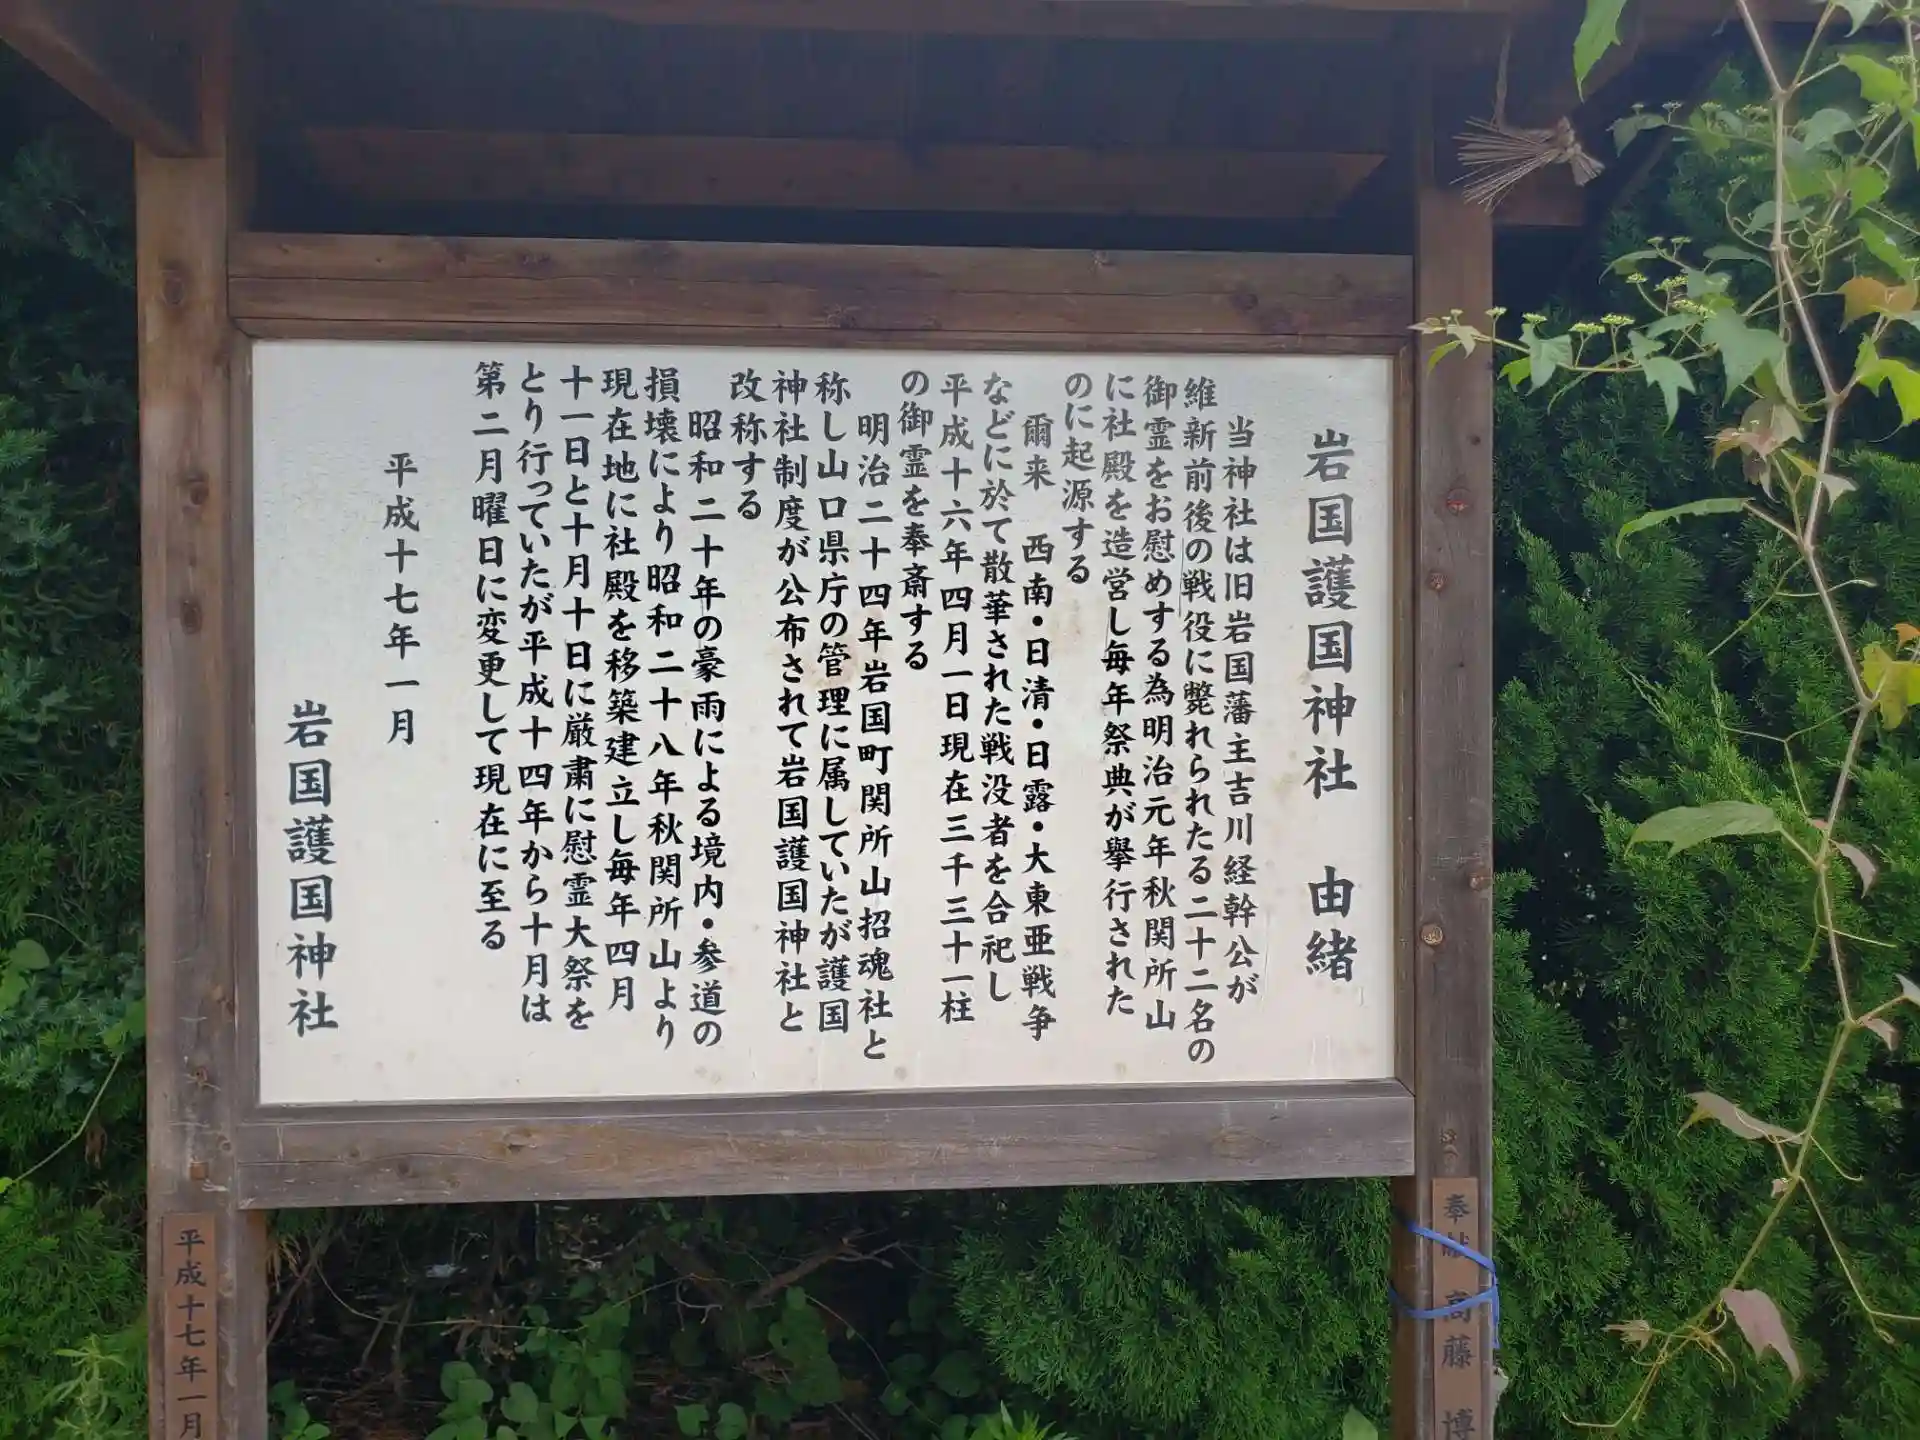 岩国護国神社　由緒
当神社は旧岩国藩主吉川経幹公が
維新前後の戦役に斃れられたる二十二名の
御霊をお慰めする為明治元年秋関所山
に社殿を造営し毎年祭典が擧行された
のに起源する
爾来　西南・日清・日露・大東亜戦争
などに於て散華された戦没者を合祀し
平成十六年四月一日現在三千三十一柱
の御霊を奉斎する
明治二十四年岩国町関所山招魂社と
称し山口県庁の管理に属していたが護国
神社制度が公布されて岩国護国神社と
改称する
昭和二十年の豪雨による境内・参道の
損壊により昭和二十八年秋関所山より
現在地に社殿を移築建立し毎年四月
十一日と十月十日に厳粛に慰霊大祭を
とり行っていたが平成十四年から十月は
第二月曜日に変更して現在に至る
平成十七年一月
岩国護国神社
奉献　高藤　博
平成十七年一月